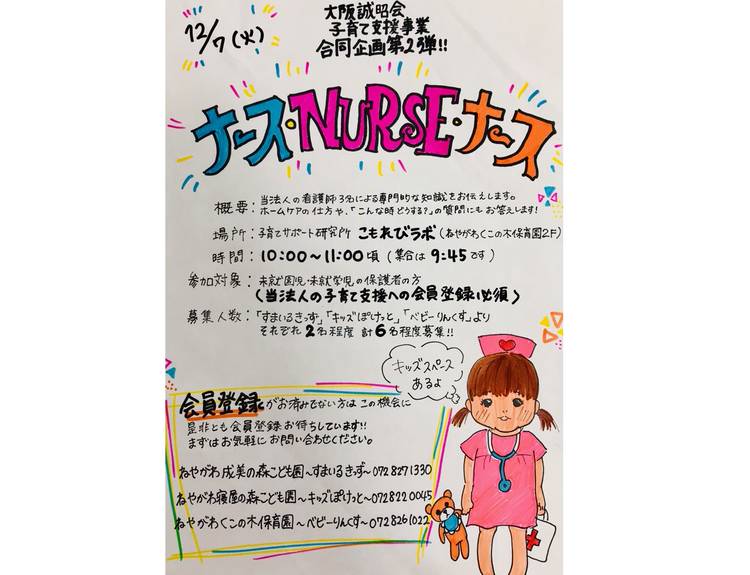 12/7(火)
大阪誠昭会
子育て支援事業
合同企画第2弾!!
ナース・NURSE・ナース
概要:当法人の看護師3名による専門的な知識をお伝えします。
ホームケアの仕方や、「こんな時どうする?」の質問にもお答えします!
場所:子育てサポート研究所 こもれびラボ(ねやがわくこの木保育園2F)
時間:10:00~11:00頃(集合は9:45です)
参加対象:未就園児・未就学児の保護者の方
(当法人の子育て支援への会員登録必須)
募集人数:「すまいるきっず」「キッズぽけっと」「ベビーりんくす」より
それぞれ2名程度 計6名程度募集!!
キッズスペース
あるよ
会員登録がお済みでない方はこの機会に
是非とも会員登録お待ちしています!!
まずはお気軽にお問い合わせください。
ねやがわ成美の森こども園~すまいるきっず~072 827 1330
ねやがわ寝屋の森こども園~キッズぽけっと~072 822 0045
ねやがわくこの木保育園~ベビーりんくす~072 826 1022